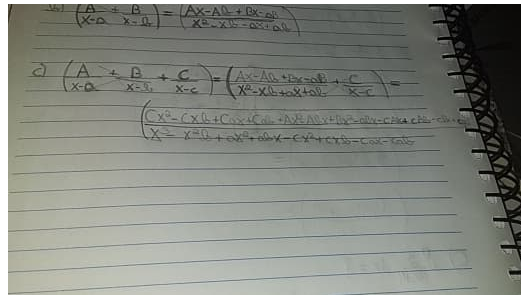 (A/x-a + B/x-b) = (Ax-Ab+Bx-aB/x²-xb-ax+ab)
c) (A/x-a + B/x-b + C/x-c) = (Ax-Ab+Bx-aB/x²-xb+ax+ab + C/x-c) =
(Cx²-Cxb+Cax+Cab+Ax²-Abx+Bx²-aBx-cAx+cAb
-x²b+ax²+abx-cx²+cxb-cax-cab